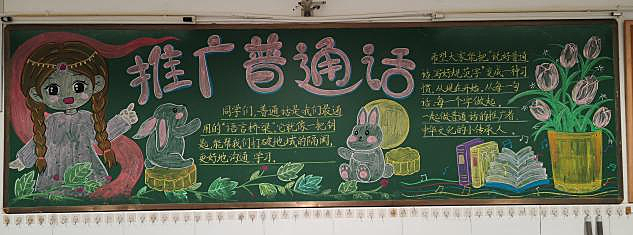 推广普通话
同学们,普通话是我们最通
用的"语言桥梁",它就像一把钥
匙,能帮我们打破地域的隔阂,
更好地沟通、学习。
希望大家能把"说好普通
话,写好规范字"变成一种习
惯,从现在开始,从每一句
话、每一个字做起,
一起做普通话的推广者,
中华文化的小传承人。